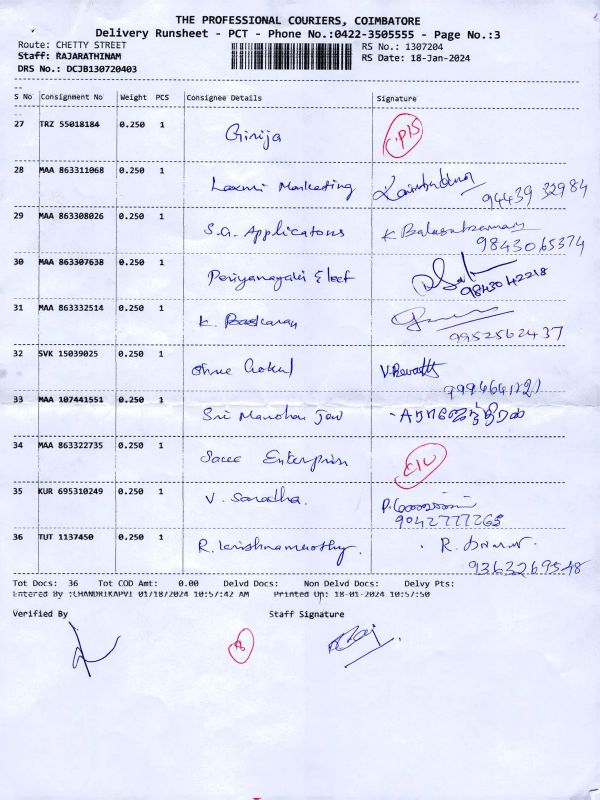 THE PROFESSIONAL COURIERS, COIMBATORE
Delivery Runsheet - PCT - Phone No.:0422-3505555 - Page No.:3
Route: CHETTY STREET RS No.: 1307204
Staff: RAJARATHINAM RS Date: 18-Jan-2024
DRS No.: DCJB130720403
S No Consignment No Weight PCS Consignee Details Signature
27 TRZ 55018184 0.250 1 Girija
28 MAA 863311068 0.250 1 Laxmi Marketing
94439 32984
29 MAA 863308026 0.250 1 S.G. Applicatons K Balasubramani
98430 65374
30 MAA 863307638 0.250 1 Periyanayaki Elect
98430 42218
31 MAA 863332514 0.250 1 K. Baskaran
9952562437
32 SVK 15039025 0.250 1 Shree Gokul V.Revathi
33 MAA 107441551 0.250 1 Sri Manohar
34 MAA 863322735 0.250 1 Enterprise
35 KUR 695310249 0.250 1 V. Saradha.
9042777265
36 TUT 1137450 0.250 1 R. Krishnamoorthy.
9363269548
Tot Docs: 36 Tot COD Amt: 0.00 Delvd Docs: Non Delvd Docs: Delvy Pts:
Entered By :CHANDRIKAPVI 01/18/2024 10:57:42 AM Printed On: 18-01-2024 10:57:50
Verified By Staff Signature